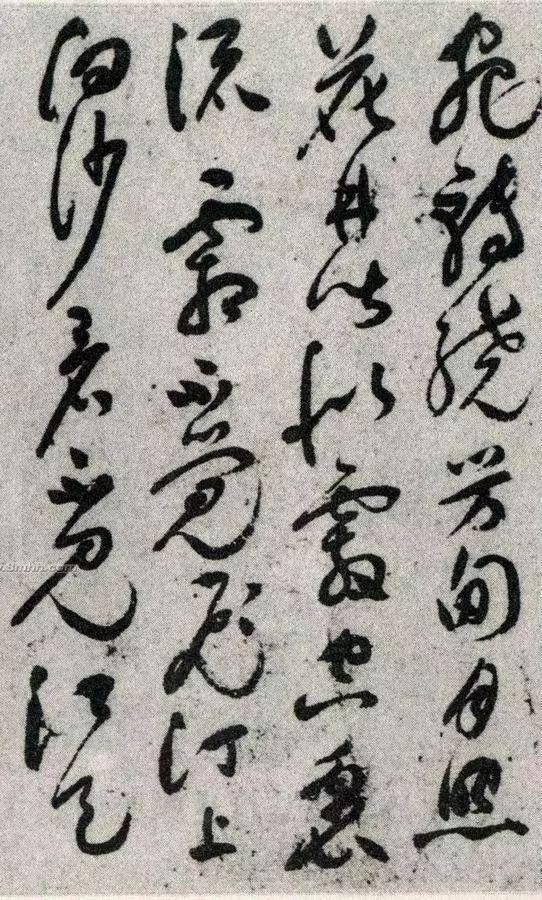 宛轉繞芳甸月照
花林皆似霰空裏
流霜不覺飛汀上
白沙看不見江天